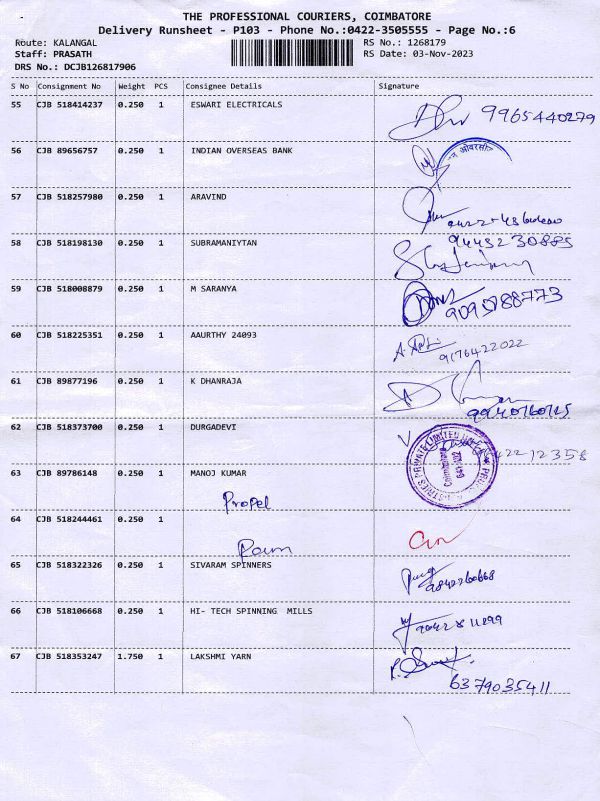 THE PROFESSIONAL COURIERS, COIMBATORE
Delivery Runsheet - P103 - Phone No.:0422-3505555 - Page No.:6
Route: KALANGAL RS No.: 1268179
Staff: PRASATH RS Date: 03-Nov-2023
DRS No.: DCJB126817906
S No Consignment No Weight PCS Consignee Details Signature
55 CJB 518414237 0.250 1 ESWARI ELECTRICALS 9965440279
56 CJB 89656757 0.250 1 INDIAN OVERSEAS BANK
57 CJB 518257980 0.250 1 ARAVIND
58 CJB 518198130 0.250 1 SUBRAMANIYTAN 9443230885
59 CJB 518008879 0.250 1 M SARANYA 9095188773
60 CJB 518225351 0.250 1 AAURTHY 24093 9176422022
61 CJB 89877196 0.250 1 K DHANRAJA
62 CJB 518373700 0.250 1 DURGADEVI
63 CJB 89786148 0.250 1 MANOJ KUMAR
Propel
64 CJB 518244461 0.250 1
65 CJB 518322326 0.250 1 SIVARAM SPINNERS 9842260668
66 CJB 518106668 0.250 1 HI- TECH SPINNING MILLS
67 CJB 518353247 1.750 1 LAKSHMI YARN
6379035411